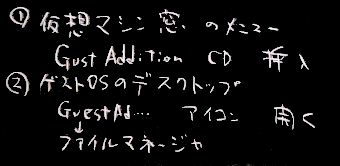 ① 仮想マシン窓 のメニュー
Gust Addition CD 挿入
② ゲストOSのデスクトップ
GuestAd... アイコン 開く
↓
ファイルマネージャ